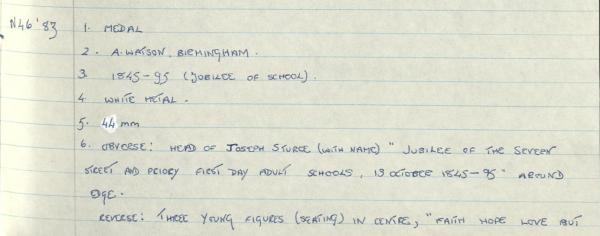 N46'83
1. MEDAL
2. A. WATSON, BIRMINGHAM.
3. 1845-95 (JUBILEE OF SCHOOL).
4. WHITE METAL.
5. 44 mm
6. OBVERSE: HEAD OF JOSEPH STURGE (WITH NAME) "JUBILEE OF THE SEVERN
STREET AND PRIORY FIRST DAY ADULT SCHOOLS, 13 OCTOBER 1845-95" AROUND
EDGE.
REVERSE: THREE YOUNG FIGURES (SEATING) IN CENTRE, "FAITH HOPE LOVE BUT